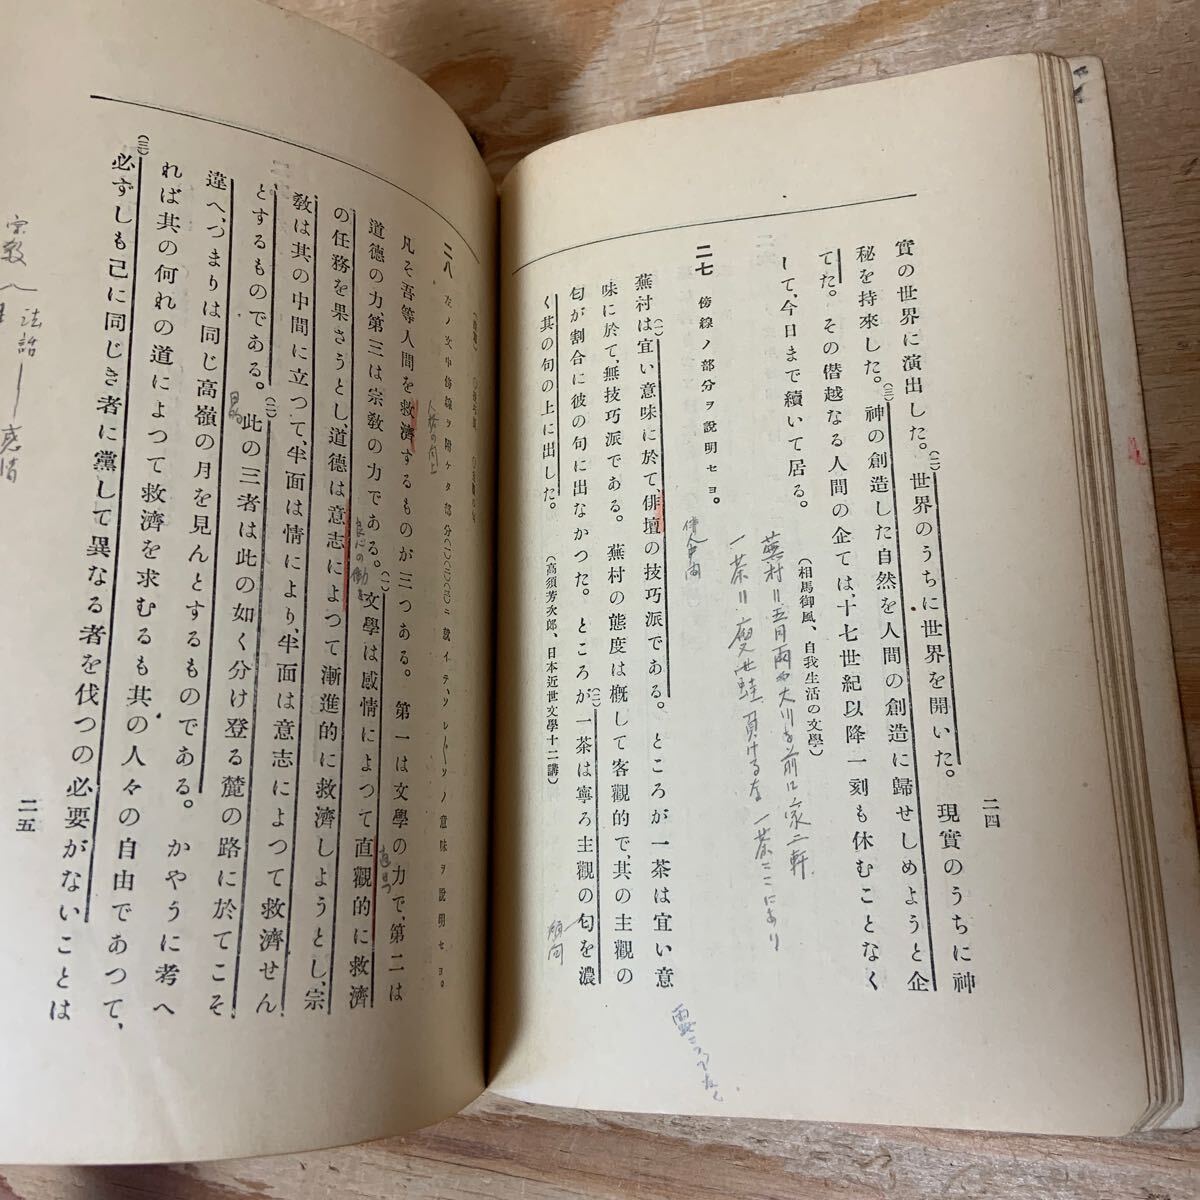 實の世界に演出した。(二)世界のうちに世界を開いた。現實のうちに神
秘を持來した。(三)神の創造した自然を人間の創造に歸せしめようと企
てた。その僭越なる人間の企ては、十七世紀以降一刻も休むことなく
して、今日まで續いて居る。
(相馬御風、自我生活の文學)
蕪村ハ五月雨や大川を前に家二軒
一茶ハ痩せ蛙負けるな一茶ここにあり
二七 傍線ノ部分ヲ說明セヨ。
俳人中間
蕪村は(一)宜い意味に於て、俳壇の技巧派である。ところが一茶は宜い意
味に於て、無技巧派である。蕪村の態度は槪して客觀的で、其の主觀の
匂が割合に彼の句に出なかつた。ところが(二)一茶は寧ろ主觀の匂を濃
く其の句の上に出した。
(高須芳次郎、日本近世文學十二講)
傾向
二四
二八 左ノ文中傍線ヲ附ケタ部分(一)(二)(三)ニ就イテ、ソレ〲ノ意味ヲ說明セヨ。
人格の向上
凡そ吾等人間を救濟するものが三つある。第一は文學の力で、第二は
道德の力、第三は宗敎の力である。(一)文學は感情によつて直觀的に救濟
良心の働き
の任務を果さうとし、道德は意志によつて漸進的に救濟しようとし、宗
敎は其の中間に立つて、半面は情により、半面は意志によつて救濟せん
とするものである。(二)此の三者は此の如く分け登る麓の路に於てこそ
違へ、つまりは同じ高嶺の月を見んとするものである。かやうに考へ
れば其の何れの道によつて救濟を求むるも其の人々の自由であつて、
(三)必ずしも己に同じき者に黨して異なる者を伐つの必要がないことは
二五
宗敎
法話
感情